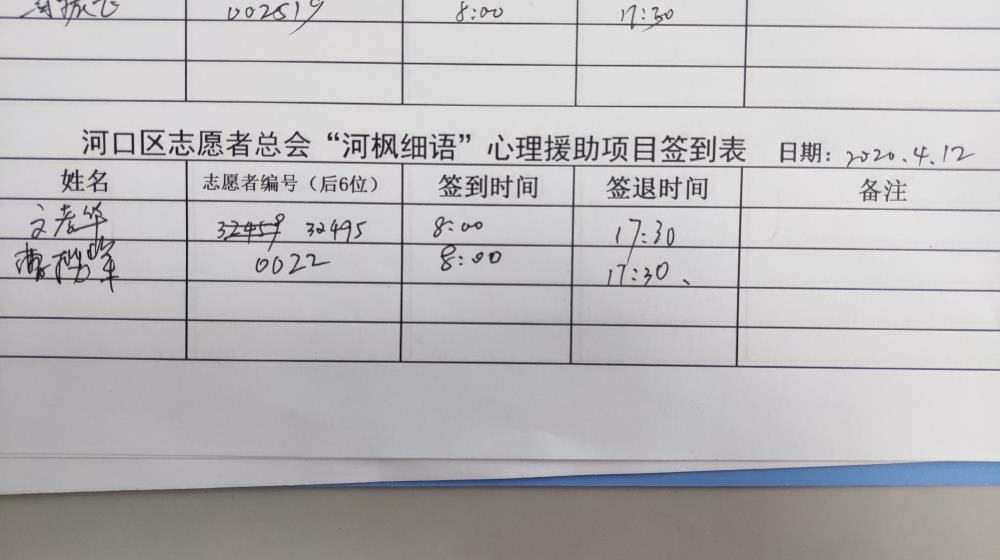 002519 8:00 17:30
河口区志愿者总会“河枫细语”心理援助项目签到表 日期：2020.4.12
姓名 志愿者编号（后6位） 签到时间 签退时间 备注
文孝华 32459 32495 8:00 17:30
0022 8:00 17:30、